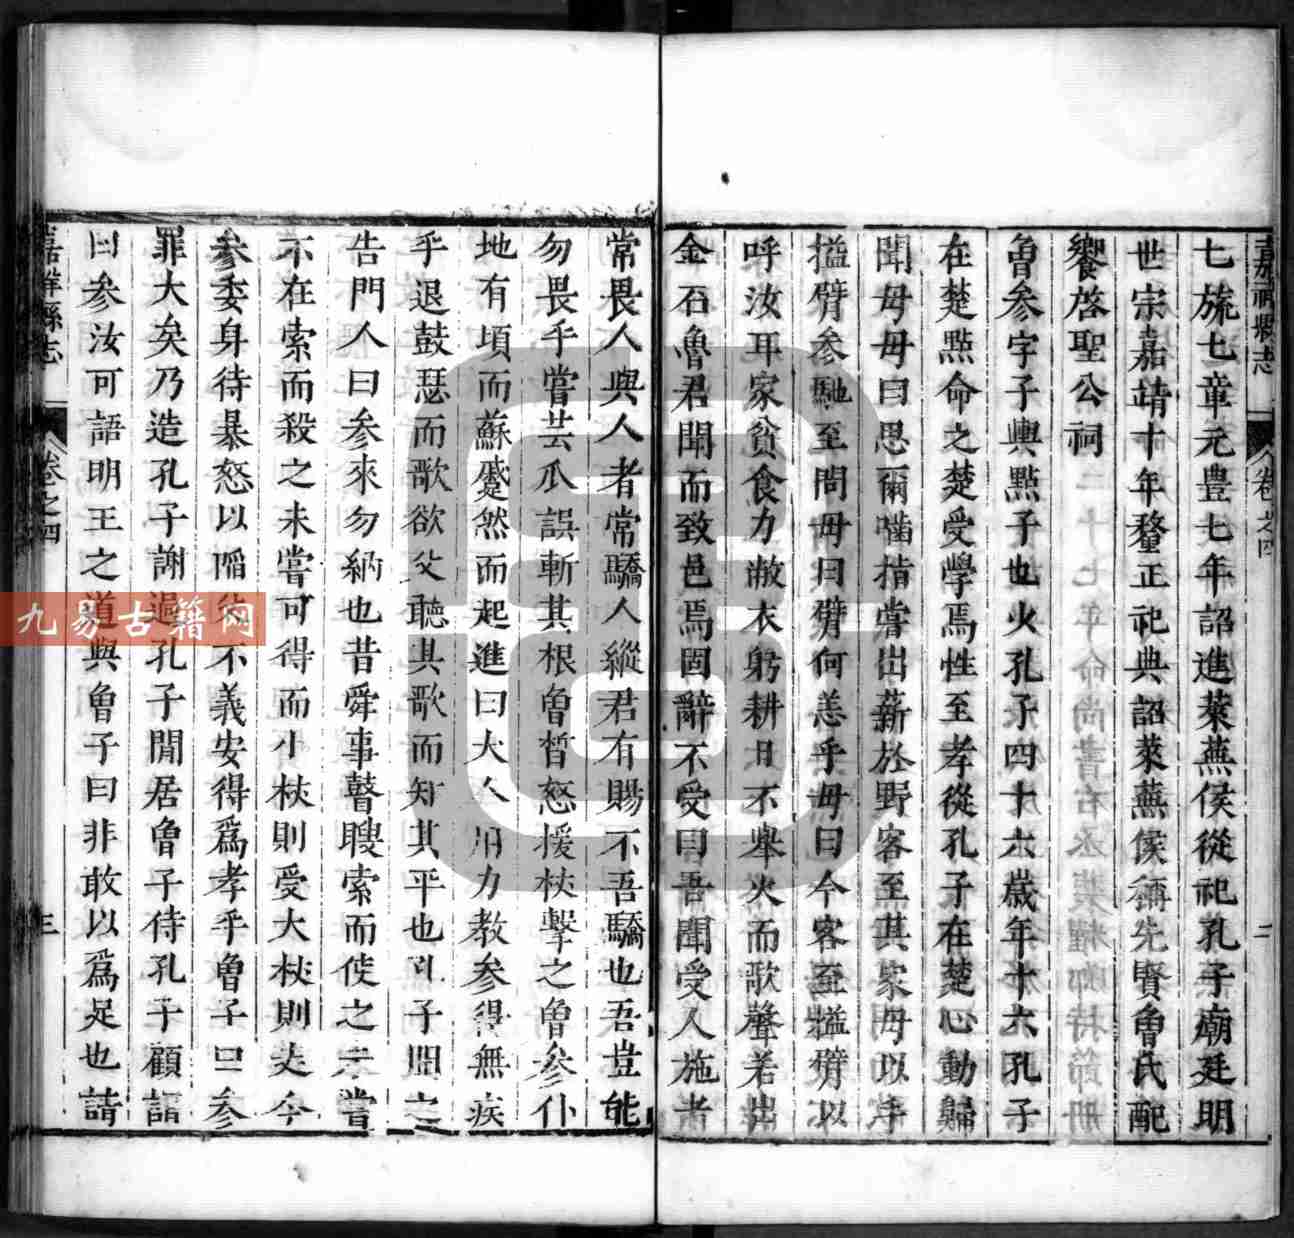 嘉祥縣志
卷之四
二
七旒七章元豊七年詔進萊蕪侯從祀孔子廟廷明
世宗嘉靖十年釐正祀典詔萊蕪侯稱先賢曾氏配
饗啓聖公祠
曾參字子輿點子也少孔子四十六歲年十六孔子
在楚點命之楚受學焉性至孝從孔子在楚心動歸
聞母母曰思爾嚙指嘗出薪於野客至其家母以手
搤臂參馳至問母曰臂何恙乎母曰今客至搤臂以
呼汝耳家貧食力敝衣躬耕日不舉火而歌聲若出
金石魯君聞而致邑焉固辭不受曰吾聞受人施者
常畏人與人者常驕人縱君有賜不吾驕也吾豈能
勿畏乎嘗芸瓜誤斬其根曾晳怒援杖擊之曾參仆
地有頃而蘇蹙然而起進曰大人用力教參得無疾
乎退鼓瑟而歌欲父聽其歌而知其平也孔子聞之
告門人曰參來勿納也昔舜事瞽瞍索而使之未嘗
不在索而殺之未嘗可得而小杖則受大杖則走今
參委身待暴怒以陷父不義安得爲孝乎曾子曰參
罪大矣乃造孔子謝過孔子閒居曾子侍孔子顧謂
曰參汝可語明王之道與曾子曰非敢以爲足也請
嘉祥縣志
卷之四
三
九易古籍网